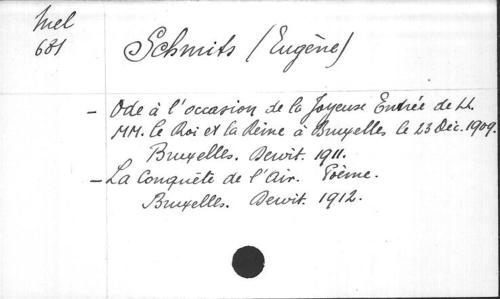 Mel
681
Schmits (Eugène)
- Ode à l'occasion de la Joyeuse Entrée de LL.
MM. le Roi et la Reine à Bruxelles le 23 Déc. 1909.
Bruxelles. Dewit. 1911.
- La Conquête de l'Air. Poème.
Bruxelles. Dewit. 1912.